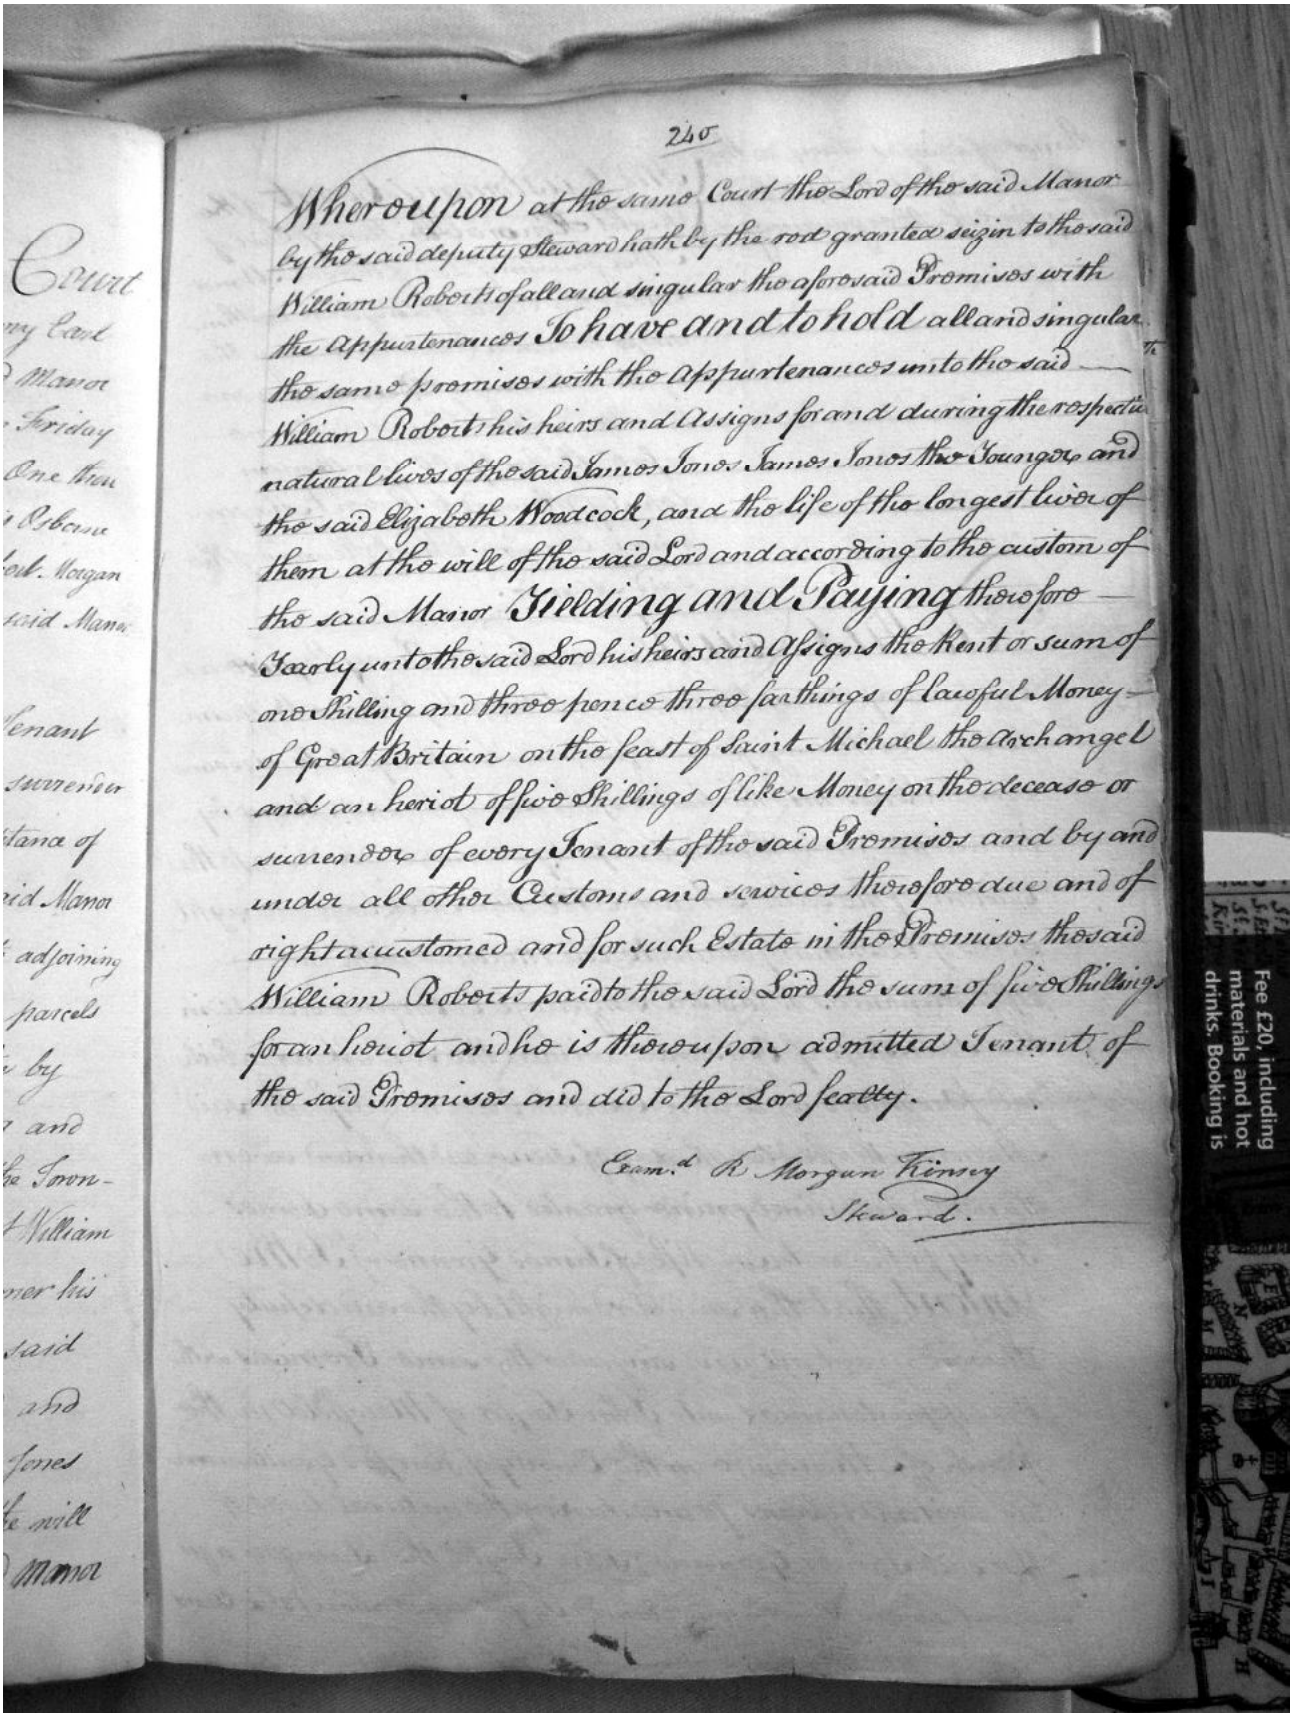 Court
my Earl
Manor
Friday
One thou
Osborne
Morgan
said Manor
Tenant
surrender
of
said Manor
adjoining
parcels
by
and
the Town-
William
his
said
and
Jones
the will
Manor
240
Whereupon at the same Court the Lord of the said Manor
by the said deputy Steward hath by the rod granted seizin to the said
William Roberts of all and singular the aforesaid Premises with
the Appurtenances To have and to hold all and singular
the same premises with the Appurtenances unto the said
William Roberts his heirs and Assigns for and during the respective
natural lives of the said James Jones James Jones the Younger and
the said Elizabeth Woodcock, and the life of the longest liver of
them at the will of the said Lord and according to the custom of
the said Manor Yielding and Paying therefore
Yearly unto the said Lord his heirs and Assigns the Rent or sum of
one Shilling and three pence three farthings of lawful Money
of Great Britain on the feast of Saint Michael the Archangel
and an heriot of five Shillings of like Money on the decease or
surrender of every Tenant of the said Premises and by and
under all other Customs and services therefore due and of
right accustomed and for such Estate in the Premises the said
William Roberts paid to the said Lord the sum of five Shillings
for an heriot and he is thereupon admitted Tenant of
the said Premises and did to the Lord fealty.
Exam.d R Morgan Kinsey
Steward.
Fee £20, including
materials and hot
drinks. Booking is